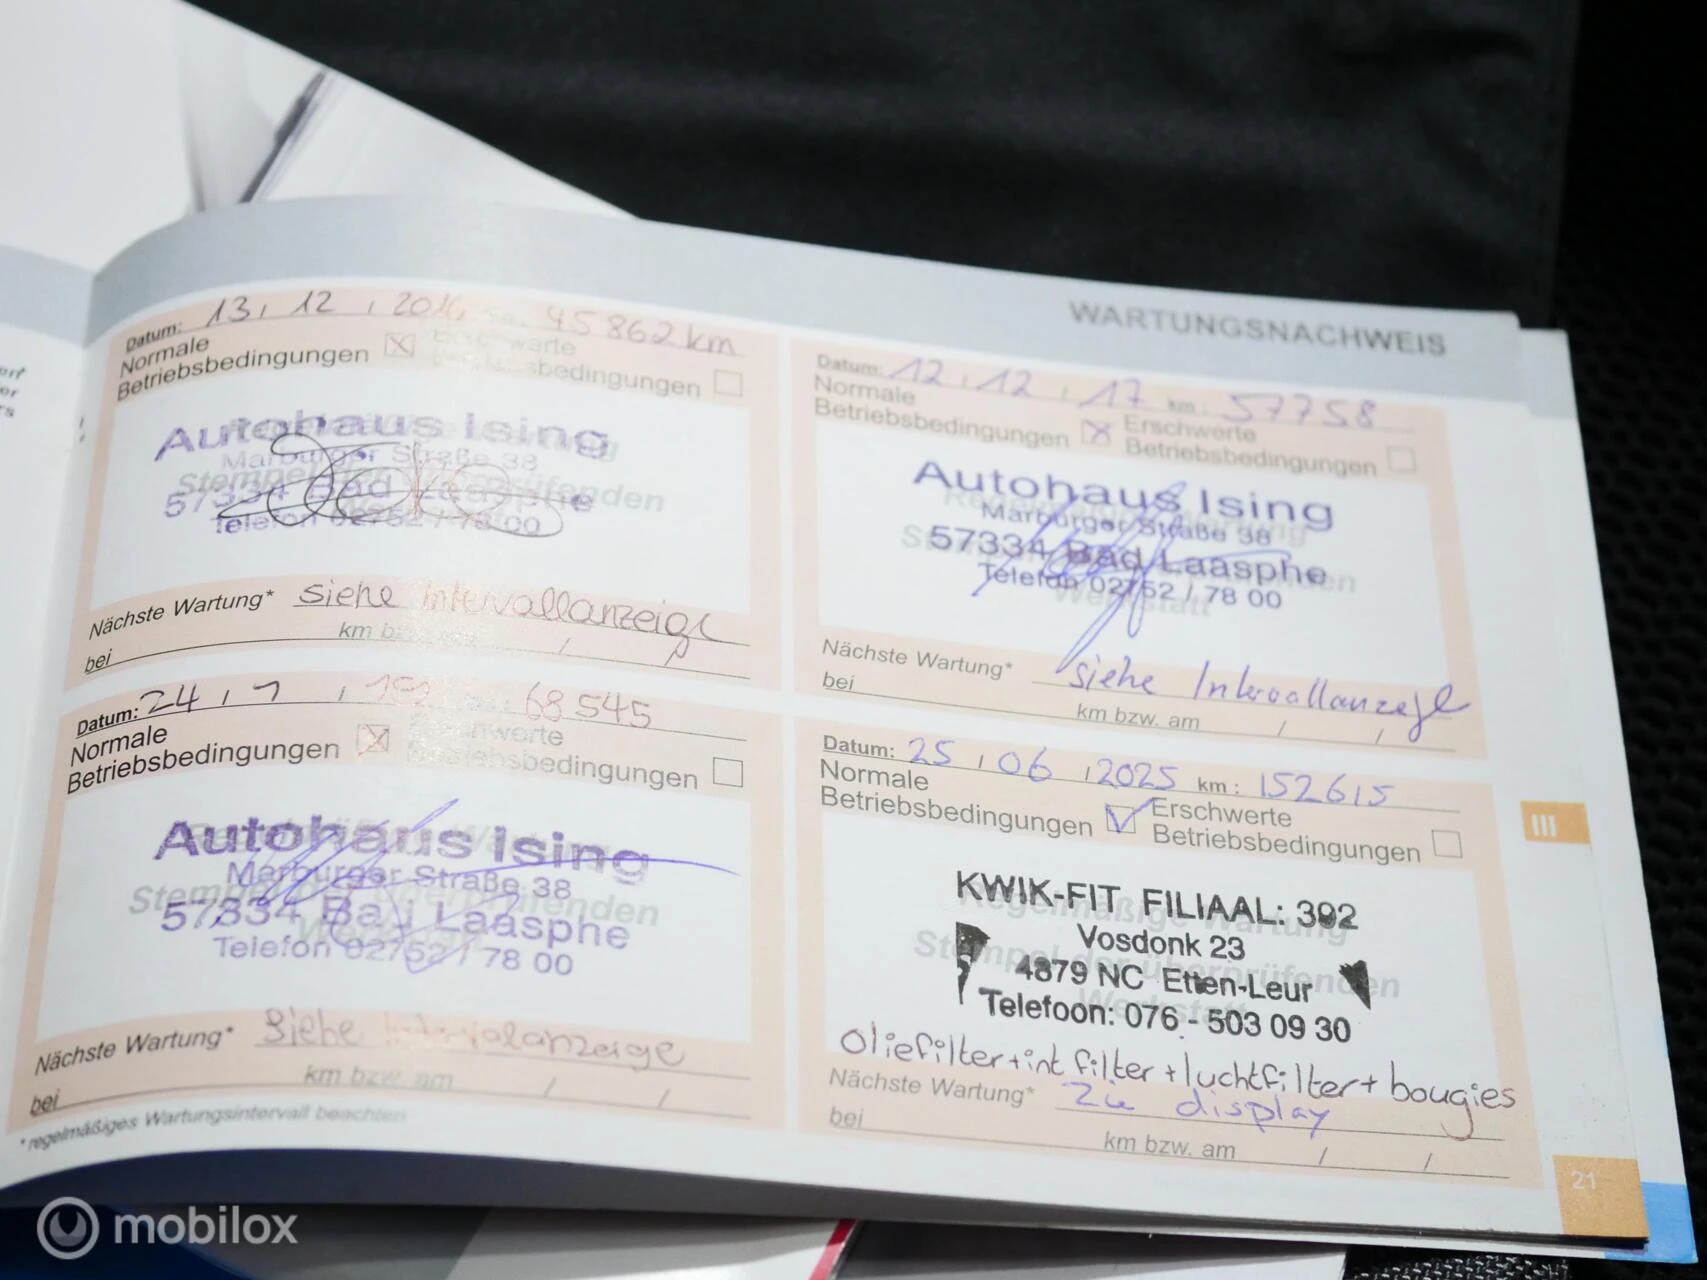 WARTUNGSNACHWEIS
Datum: 13, 12, 2016 45862 km
Normale
Betriebsbedingungen
Autohaus Ising
Marburger Straße 38
57334 Bad Laasphe
Telefon 02752 / 78 00
Nächste Wartung* siehe Intervallanzeige
bei km bzw. / /
Datum: 12, 12, 17 km: 57758
Normale Erschwerte
Betriebsbedingungen Betriebsbedingungen
Autohaus Ising
Marburger Straße 38
57334 Bad Laasphe
Telefon 02752 / 78 00
Nächste Wartung* siehe Intervallanzeige
bei km bzw. am / /
Datum: 24, 7, 68 545
Normale
Betriebsbedingungen Betriebsbedingungen
Autohaus Ising
Marburger Straße 38
57334 Bad Laasphe
Telefon 02752 / 78 00
Nächste Wartung* Siehe Intervalanzeige
bei km bzw. am / /
*regelmäßiges Wartungsintervall beachten
Datum: 25, 06, 2025 km: 152615
Normale Erschwerte
Betriebsbedingungen Betriebsbedingungen
KWIK-FIT FILIAAL: 392
Vosdonk 23
4879 NC Etten-Leur
Telefoon: 076 - 503 09 30
Oliefilter+int filter+luchtfilter+ bougies
Nächste Wartung* Zie display
bei km bzw. am / /
III
21
mobilox